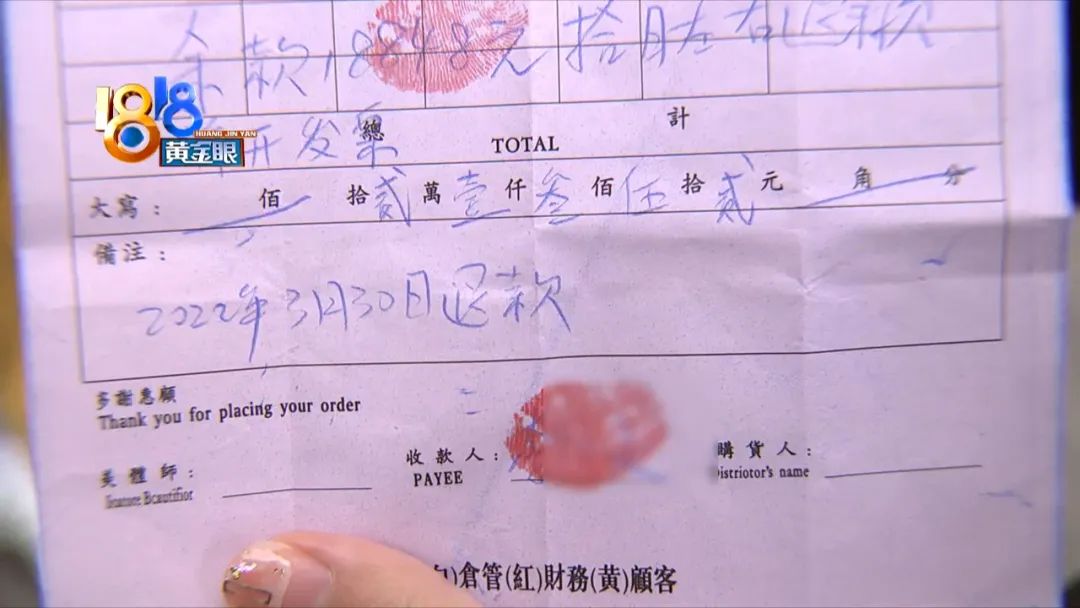 余款18848元 拾月左右退款
1818 HUANG JIN YAN
黄金眼
开发票
總 TOTAL 計
大寫： 佰 拾 贰 萬 壹 仟 叁 佰 伍 拾 贰 元 角 分
備注：
2022年3月30日退款
多謝惠顧
Thank you for placing your order
美體師：
收款人：
PAYEE
購貨人：
Distriotor's name
倉管(紅)財務(黄)顧客